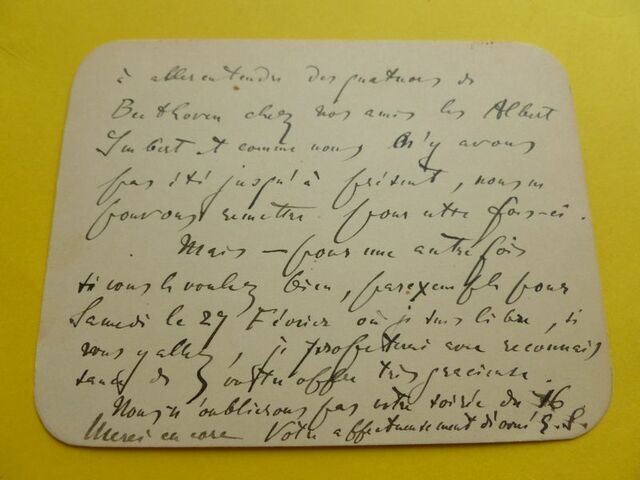 à aller entendre des quatuors de
Beethoven chez nos amis les Albert
Imbert et comme nous n'y avons
pas été jusqu'à présent, nous ne
pouvons remettre pour cette fois-ci.
Mais – pour une autre fois
si vous le voulez bien, par exemple pour
Samedi le 29 Février où je suis libre, si
vous y allez, je profiterai avec reconnais
sance de votre offre très gracieuse.
Nous n'oublierons pas votre soirée du 16
Merci encore Votre affectueusement dévoué E. S.